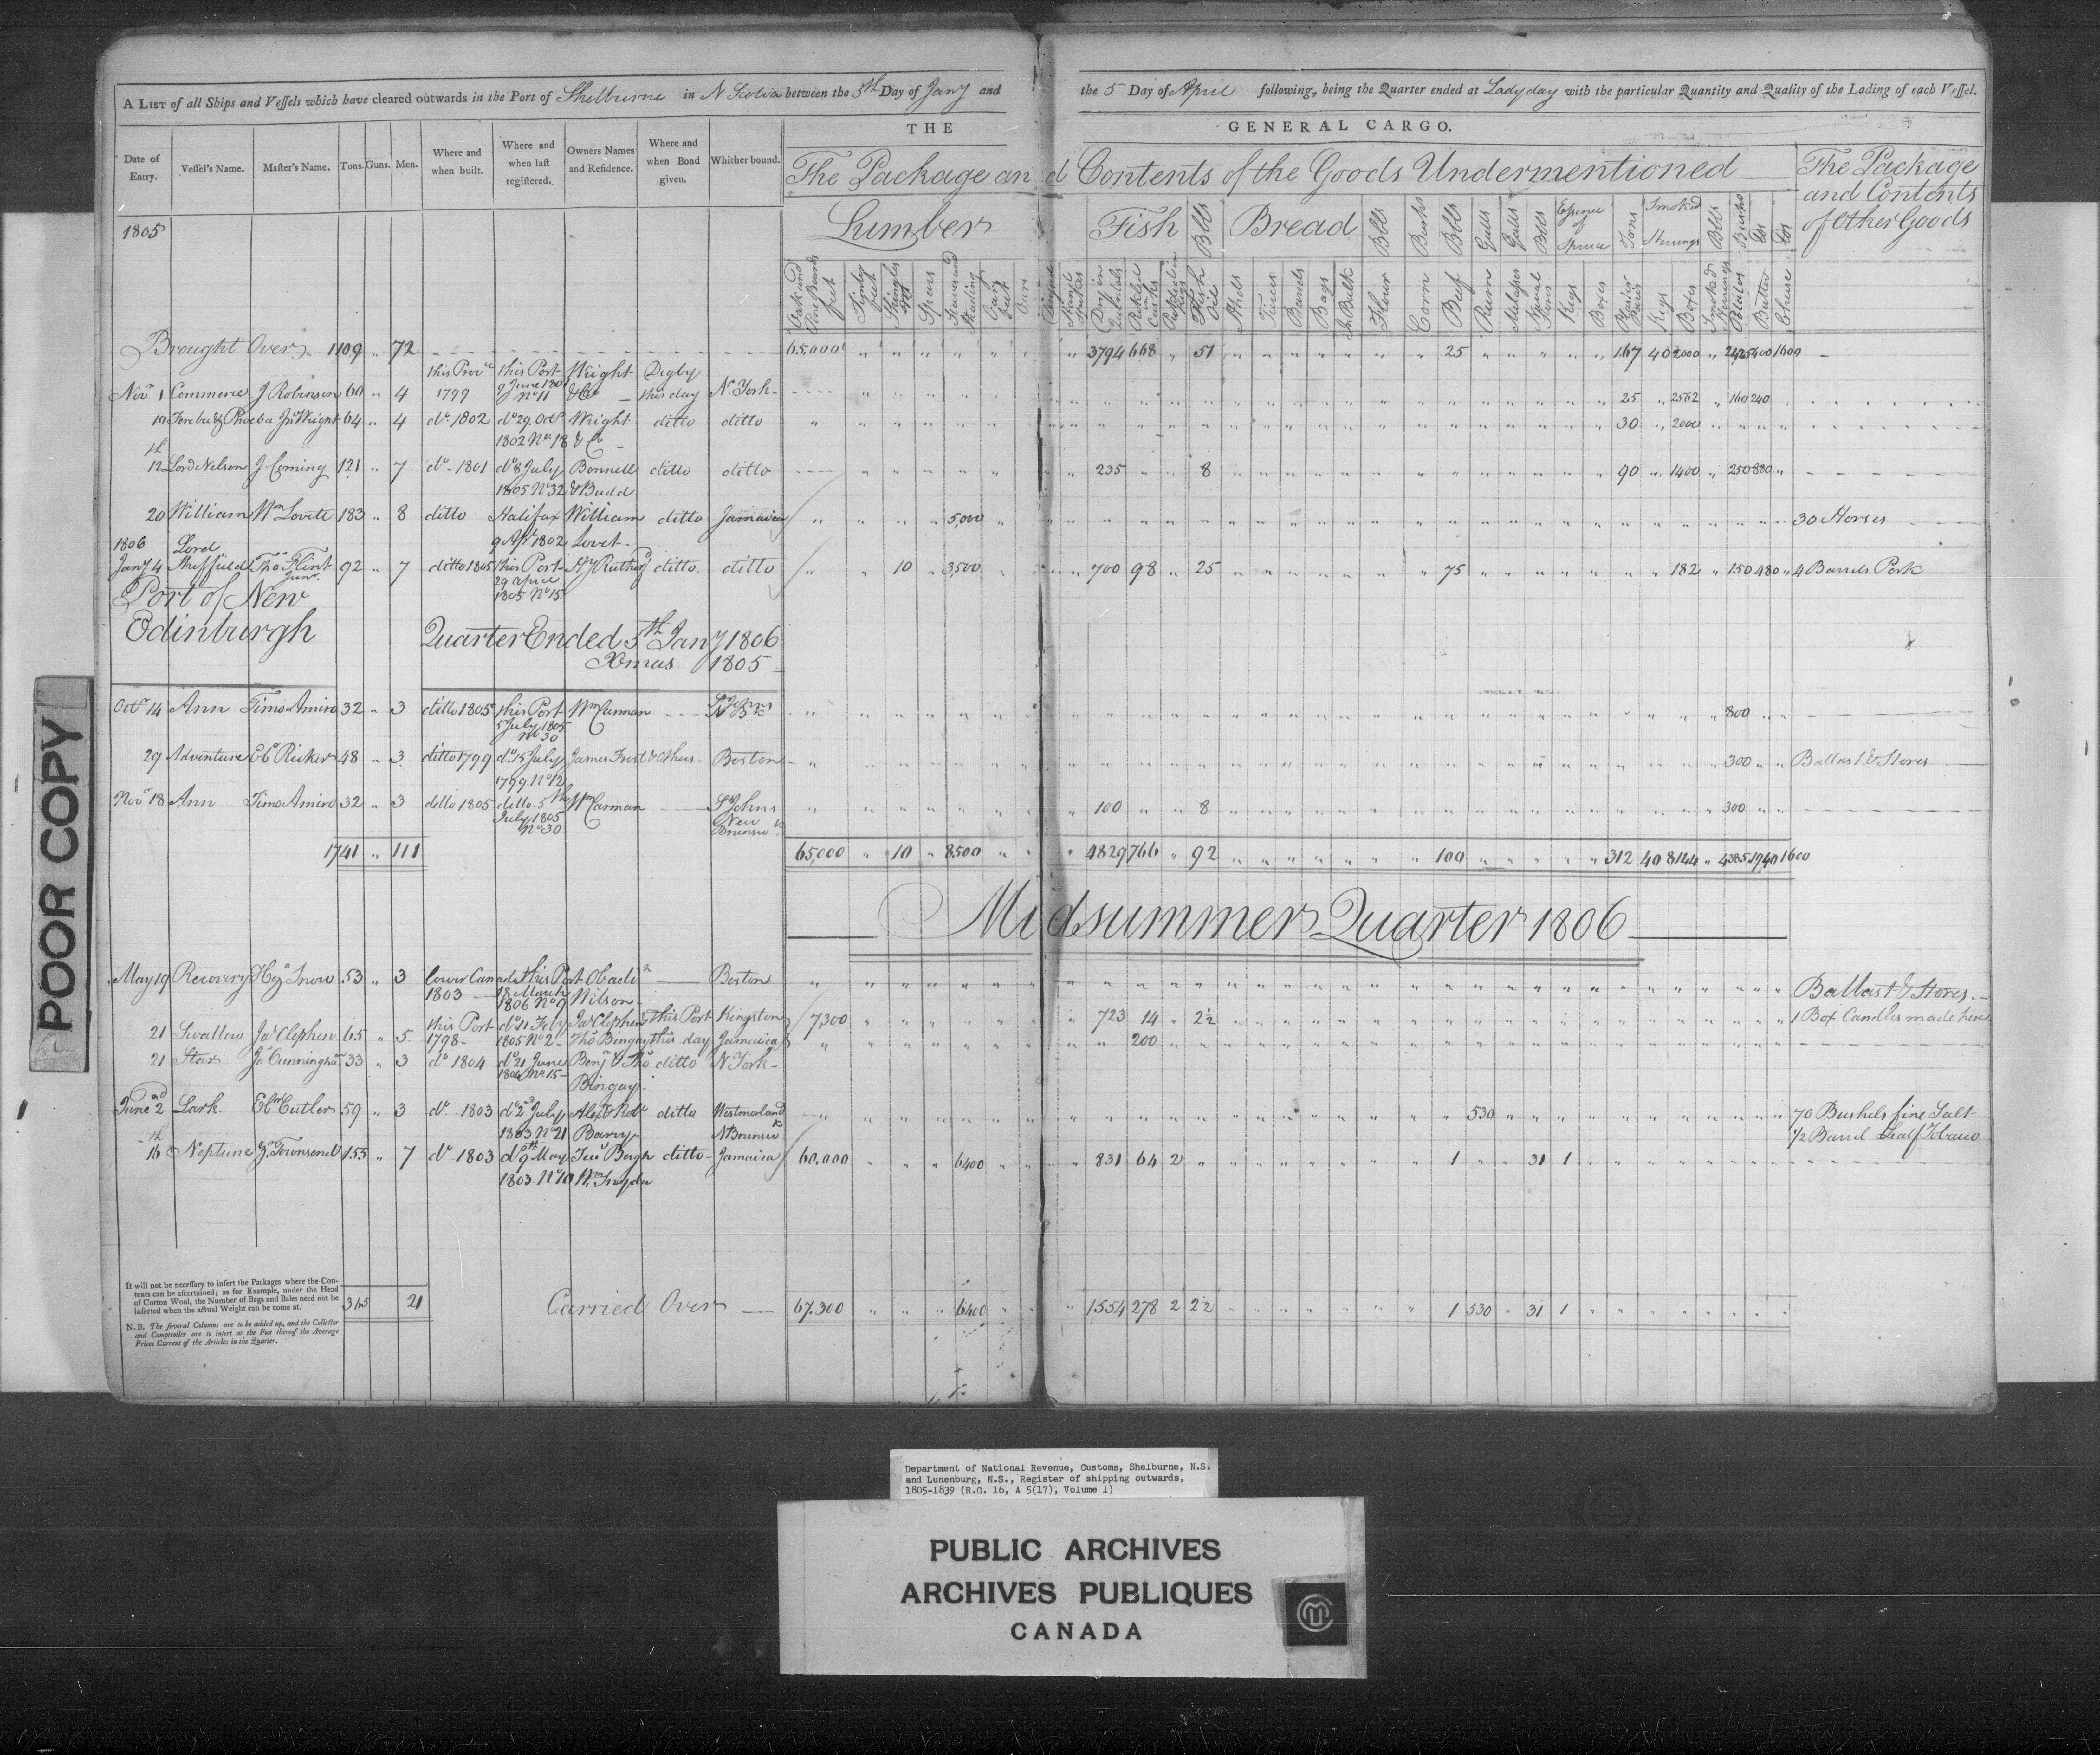 A LIST of all Ships and Vessels which have cleared outwards in the Port of Shelburne in N Scotia between the 5th Day of Jany and the 5 Day of April following, being the Quarter ended at Ladyday with the particular Quantity and Quality of the Lading of each Vessel.
THE GENERAL CARGO.
Date of Entry. Vessel's Name. Master's Name. Tons. Guns. Men. Where and when built. Where and when last registered. Owners Names and Residence. Where and when Bond given. Whither bound.
The Package and Contents of the Goods Undermentioned
The Package and Contents of Other Goods
1805
Lumber Fish Bbls Bread Bbls Bush Bbls Galls Galls Bbls Essence of Spruce Tons Smoked Herrings Bbls Bushs
Oak and Pine Boards feet Shingles Spars Staves and Oars Dry in Quintals Pickled in Casks Fish Oil Tierces Barrels Bags In Bulk Flour Corn Beef Rum Molasses Naval Stores Kegs Boxes Plaister Paris Kegs Boxes Smoked Potatoes Butter Cheese
Brought Over 1109 " 72 65,000 3794 668 " 51 25 167 40 2000 " 2425 400 1600
Nov 1 Commerce J Robinson 60 " 4 this Prove 1799 this Port 9 June 1801 No 11 Wright & Co Digby this day N. York 25 " 2562 " 160 240
10 Jno Wright 64 " 4 do 1802 do 29 Octr 1802 No 18 Wright & Co ditto ditto 30 " 2000
12th Lord Nelson J Corning 121 " 7 do 1801 do 8 July 1805 No 32 Bonnell & Budd ditto ditto 235 8 90 " 1400 " 250 820 "
20 William Wm Lovett 183 " 8 ditto Halifax 9 Apl 1802 William Lovet ditto Jamaica 5,000 30 Horses
1806
Jany 4 Lord Sheffield Thos Flint Junr. 92 " 7 ditto 1805 this Port 29 April 1805 No 15 ditto ditto 10 " 3,500 700 98 " 25 75 182 " 150 480 " 4 Barrels Pork
Port of New
Edinburgh
Quarter Ended 5th Jany 1806
Xmas 1805
Octr 14 Ann Timo Amiro 32 " 3 ditto 1805 this Port 5 July 1805 No 30 Wm Carman St Johns N Bk 800
29 Adventure Ebr Ricker 48 " 3 ditto 1799 do 15 July 1799 No 12 James Frost & others Boston 300 Ballast & Stores
Nov 18 Ann Timo Amiro 32 " 3 ditto 1805 ditto 5th July 1805 No 30 Wm Carman St Johns New Brunsk 100 8 300
1741 " 111 65,000 " 10 " 8500 4829 766 " 92 100 312 40 8144 " 4385 1940 1600
Midsummer Quarter 1806
May 19 Recovery Snow 53 " 3 Lower Canada 1803 this Port 18 March 1806 No 9 Obadiah Wilson Boston Ballast & Stores
21 Swallow Jas Clephen 65 " 5 this Port 1798 do 11 Feby 1805 No 2 Jas Clephen & Thos Bingay this Port this day Kingston Jamaica 7,300 723 14 " 2½ 1 Box Candles made here
21 Star Js Cunningham 33 " 3 do 1804 do 21 June 1804 No 15 Benj & Thos Bingay ditto N York 200
June 2nd Lark Ebr Cutler 59 " 3 do 1803 do 2nd July 1803 No 21 Alexr & Robt Barry ditto Westmorland N Brunsk 530 70 Bushels fine Salt
½ Barrel Leaf Tobacco
16th Neptune Townsend 155 " 7 do 1803 do 9th May 1803 No 10 ditto Jamaica 60,000 6400 831 64 2 1 31 1
It will not be necessary to insert the Packages where the Contents can be ascertained; as for Example, under the Head of Cotton Wool, the Number of Bags and Bales need not be inserted when the actual Weight can be come at.
N.B. The several Columns are to be added up, and the Collector and Comptroller are to insert at the Foot thereof the Average Prices Current of the Articles in the Quarter.
365 21 Carried Over 67,300 6400 1554 278 2 2½ 1 530 " 31 1
POOR COPY
Department of National Revenue, Customs, Shelburne, N.S.
and Lunenburg, N.S., Register of shipping outwards,
1805-1839 (R.G. 16, A 5(17), Volume 1)
PUBLIC ARCHIVES
ARCHIVES PUBLIQUES
CANADA